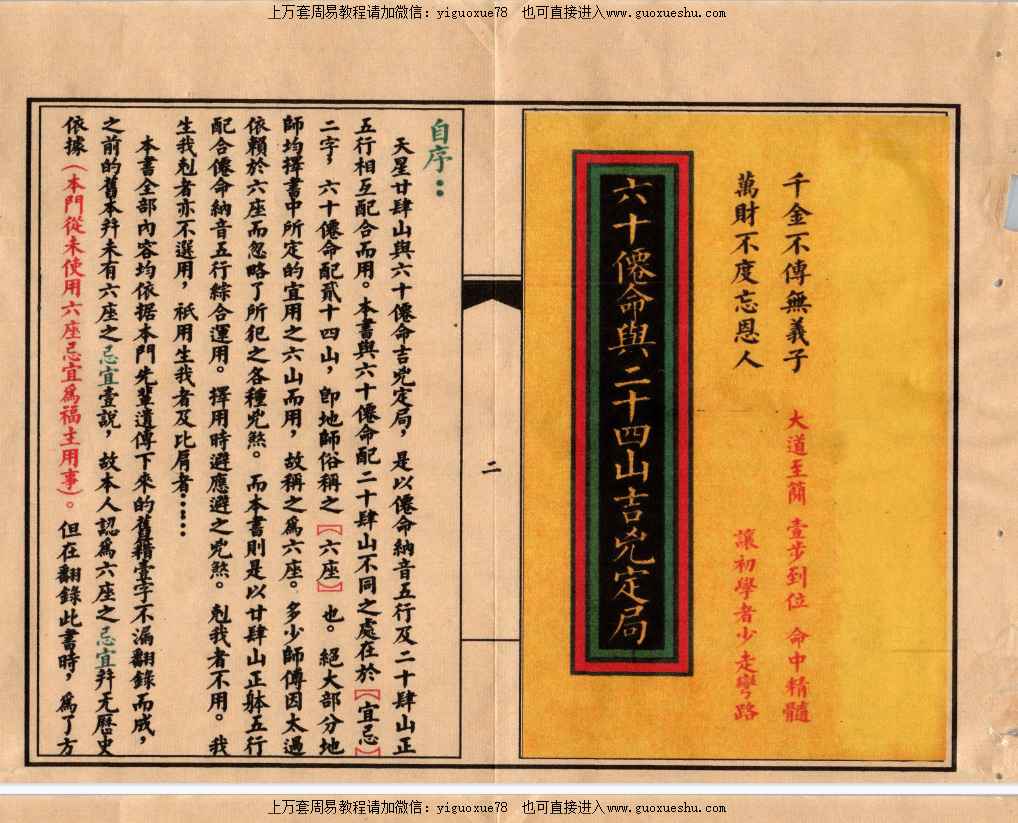 上万套周易教程请加微信：yiguoxue78　也可直接进入www.guoxueshu.com
千金不傳無義子
萬財不度忘恩人
大道至簡 壹步到位 命中精髓
讓初學者少走彎路
六十僊命與二十四山吉兇定局
二
自序：
天星廿肆山與六十僊命吉兇定局，是以僊命納音五行及二十肆山正
五行相互配合而用。本書與六十僊命配二十肆山不同之處在於【宜忌】
二字，六十僊命配貳十四山，卽地師俗稱之【六座】也。絕大部分地
師均擇書中所定的宜用之六山而用，故稱之爲六座。多少師傅因太過
依賴於六座而忽略了所犯之各種兇煞。而本書則是以廿肆山正躰五行
配合僊命納音五行綜合運用。擇用時避應避之兇煞。剋我者不用。我
生我剋者亦不選用，祇用生我者及比肩者……
本書全部內容均依据本門先輩遺傳下來的舊籍壹字不漏翻錄而成，
之前的舊本幷未有六座之忌宜壹說，故本人認爲六座之忌宜幷无歷史
依據（本門從未使用六座忌宜爲福主用事）。但在翻錄此書時，爲了方
上万套周易教程请加微信：yiguoxue78　也可直接进入www.guoxueshu.com